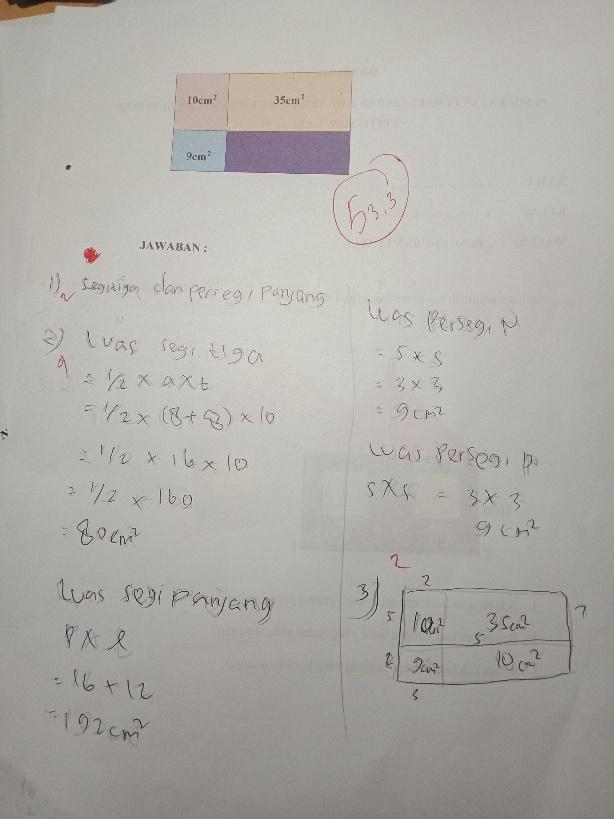 10cm²
35cm²
9cm²
53,3
JAWABAN :
1) Segitiga dan persegi Panjang
2
2) Luas segitiga
9
= 1/2 x a x t
= 1/2 x (8+8) x 10
= 1/2 x 16 x 10
= 1/2 x 160
= 80cm²
Luas segi panjang
P x l
= 16 x 12
= 192cm²
Luas Persegi N
= s x s
= 3 x 3
= 9cm²
Luas Persegi p
s x s = 3 x 3
9 cm²
2
3)
2
5
10cm²
35cm²
7
5
2
9cm²
10cm²
3